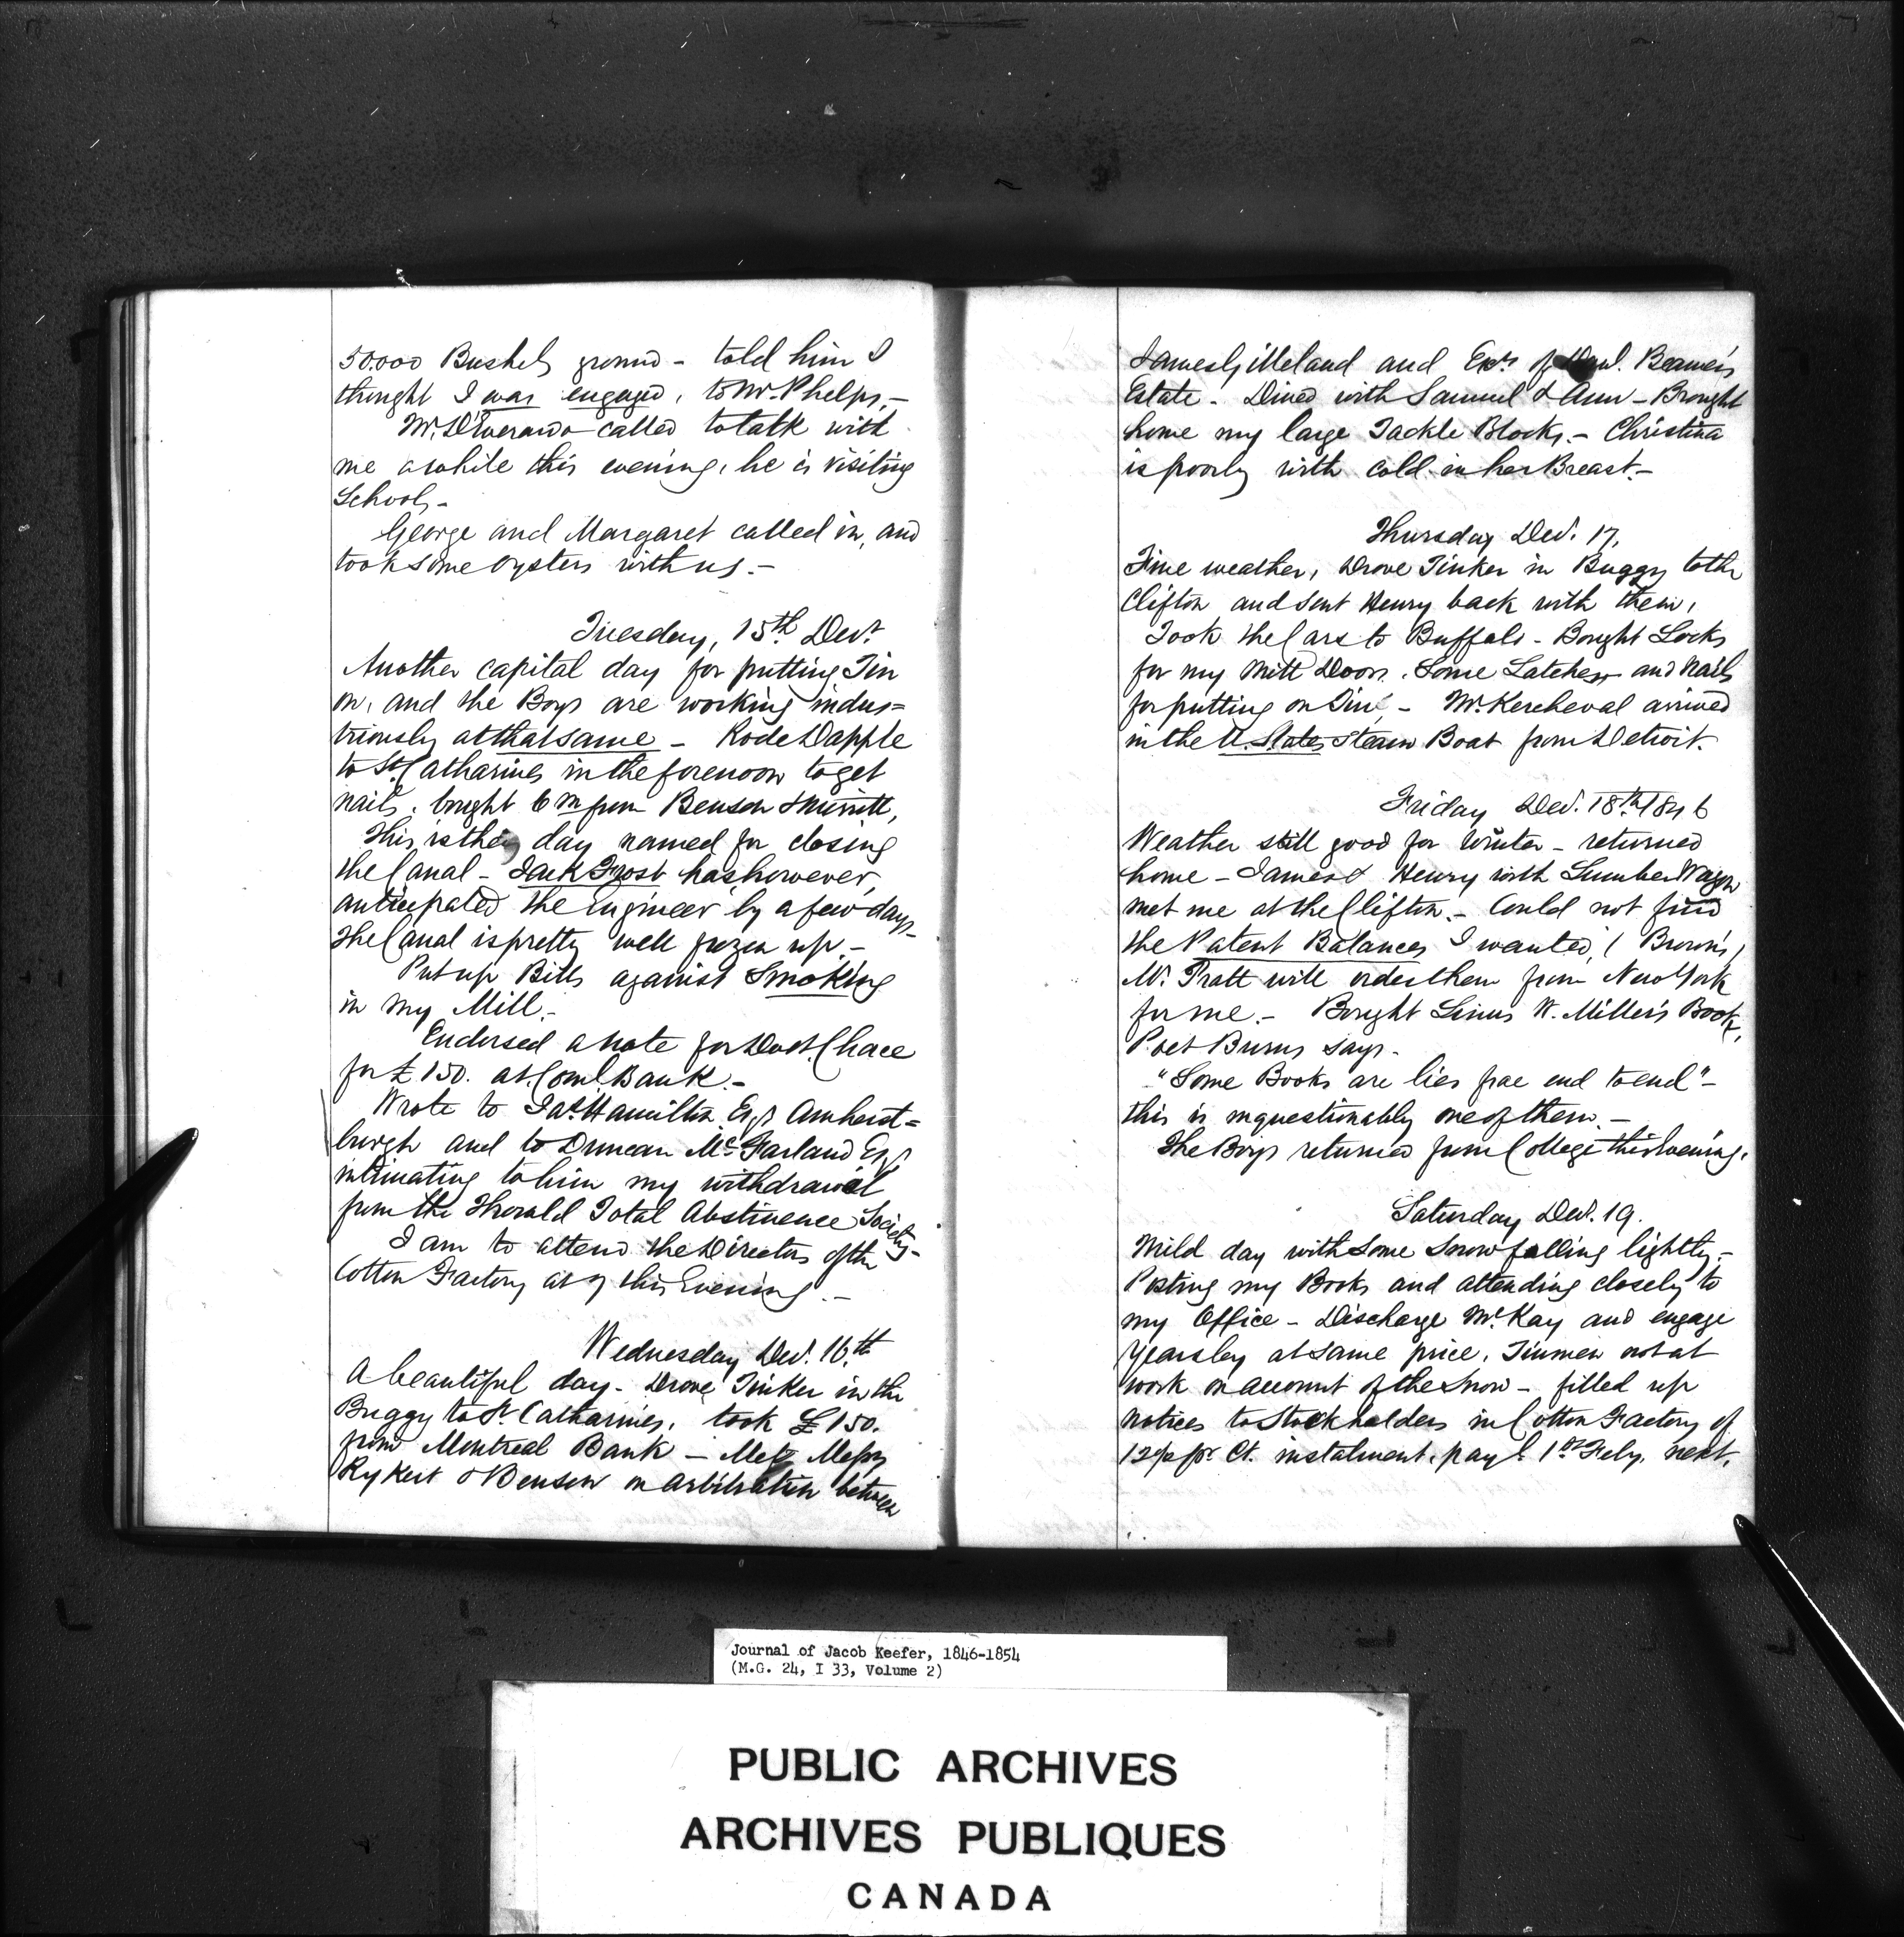 50.000 Bushels ground - told him I
thought I was engaged, to Mr Phelps, -
Mr. D'Everardo called to talk with
me awhile this evening, he is visiting
Schools -
George and Margaret called in, and
took some oysters with us. -
Tuesday, 15th Decr
Another capital day for putting Tin
on, and the Boys are working indus=
triously at that same - Rode Dapple
to St Catharines in the forenoon to get
nails, bought 6 m from Benson & Merritt,
This is the day named for closing
the Canal - Jack Frost has however,
anticipated the Engineer by a few days -
the Canal is pretty well frozen up. -
Put up Bills against Smoking
in my Mill. -
Endorsed a note for Doct. Chace
for £150. at Coml. Bank. -
Wrote to Jas. Hamilton Esqr Amherst=
burgh and to Duncan McFarland Esqr
intimating to him my withdrawal
from the Thorold Total Abstinence Society -
I am to attend the Directors of the
Cotton Factory at 7 this Evening. -
Wednesday Decr. 16.th
A beautiful day - Drove Tinker in the
Buggy to St. Catharines, took £150.
from Montreal Bank - Met Messrs
Rykert & Benson on arbitration between
James Gilleland and Exrs of Beamer's
Estate - Dined with Samuel & Ann - Brought
home my large Tackle Blocks. - Christina
is poorly with cold in her Breast. -
Thursday Decr. 17.
Fine weather, Drove Tinker in Buggy to the
Clifton and sent Henry back with them,
Took the Cars to Buffalo - Bought Locks
for my Mill Doors, Some Latches and Nails
for putting on Tin, - Mr. Kercheval arrived
in the U. States Steam Boat from Detroit.
Friday Decr. 18.th 1846
Weather still good for Winter - returned
home - James & Henry with Lumber Wagon
met me at the Clifton. - Could not find
the Patent Balances I wanted, (Brown's)
Mr. Pratt will order them from New York
for me. - Bought Linus W. Miller's Book,
Poet Burns says -
"Some Books are lies frae end to end" -
this is unquestionably one of them. -
The Boys returned from College this Evening.
Saturday Decr. 19.
Mild day with some snow falling lightly, -
Posting my Books and attending closely to
my Office - Discharge McKay and engage
Yearsley at same price. Tinmen not at
work on account of the snow - filled up
notices to Stockholders in Cotton Factory of
12½ pr Ct. instalment, payl. 1st Feby. next.
Journal of Jacob Keefer, 1846-1854
(M.G. 24, I 33, Volume 2)
PUBLIC ARCHIVES
ARCHIVES PUBLIQUES
CANADA